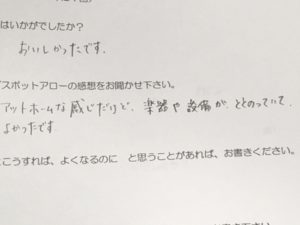 はいかがでしたか？
おいしかったです。
スポットアローの感想をお聞かせ下さい。
アットホームな感じだけど、楽器や設備が、ととのっていて、
よかったです
こうすれば、よくなるのに　と思うことがあれば、お書きください。